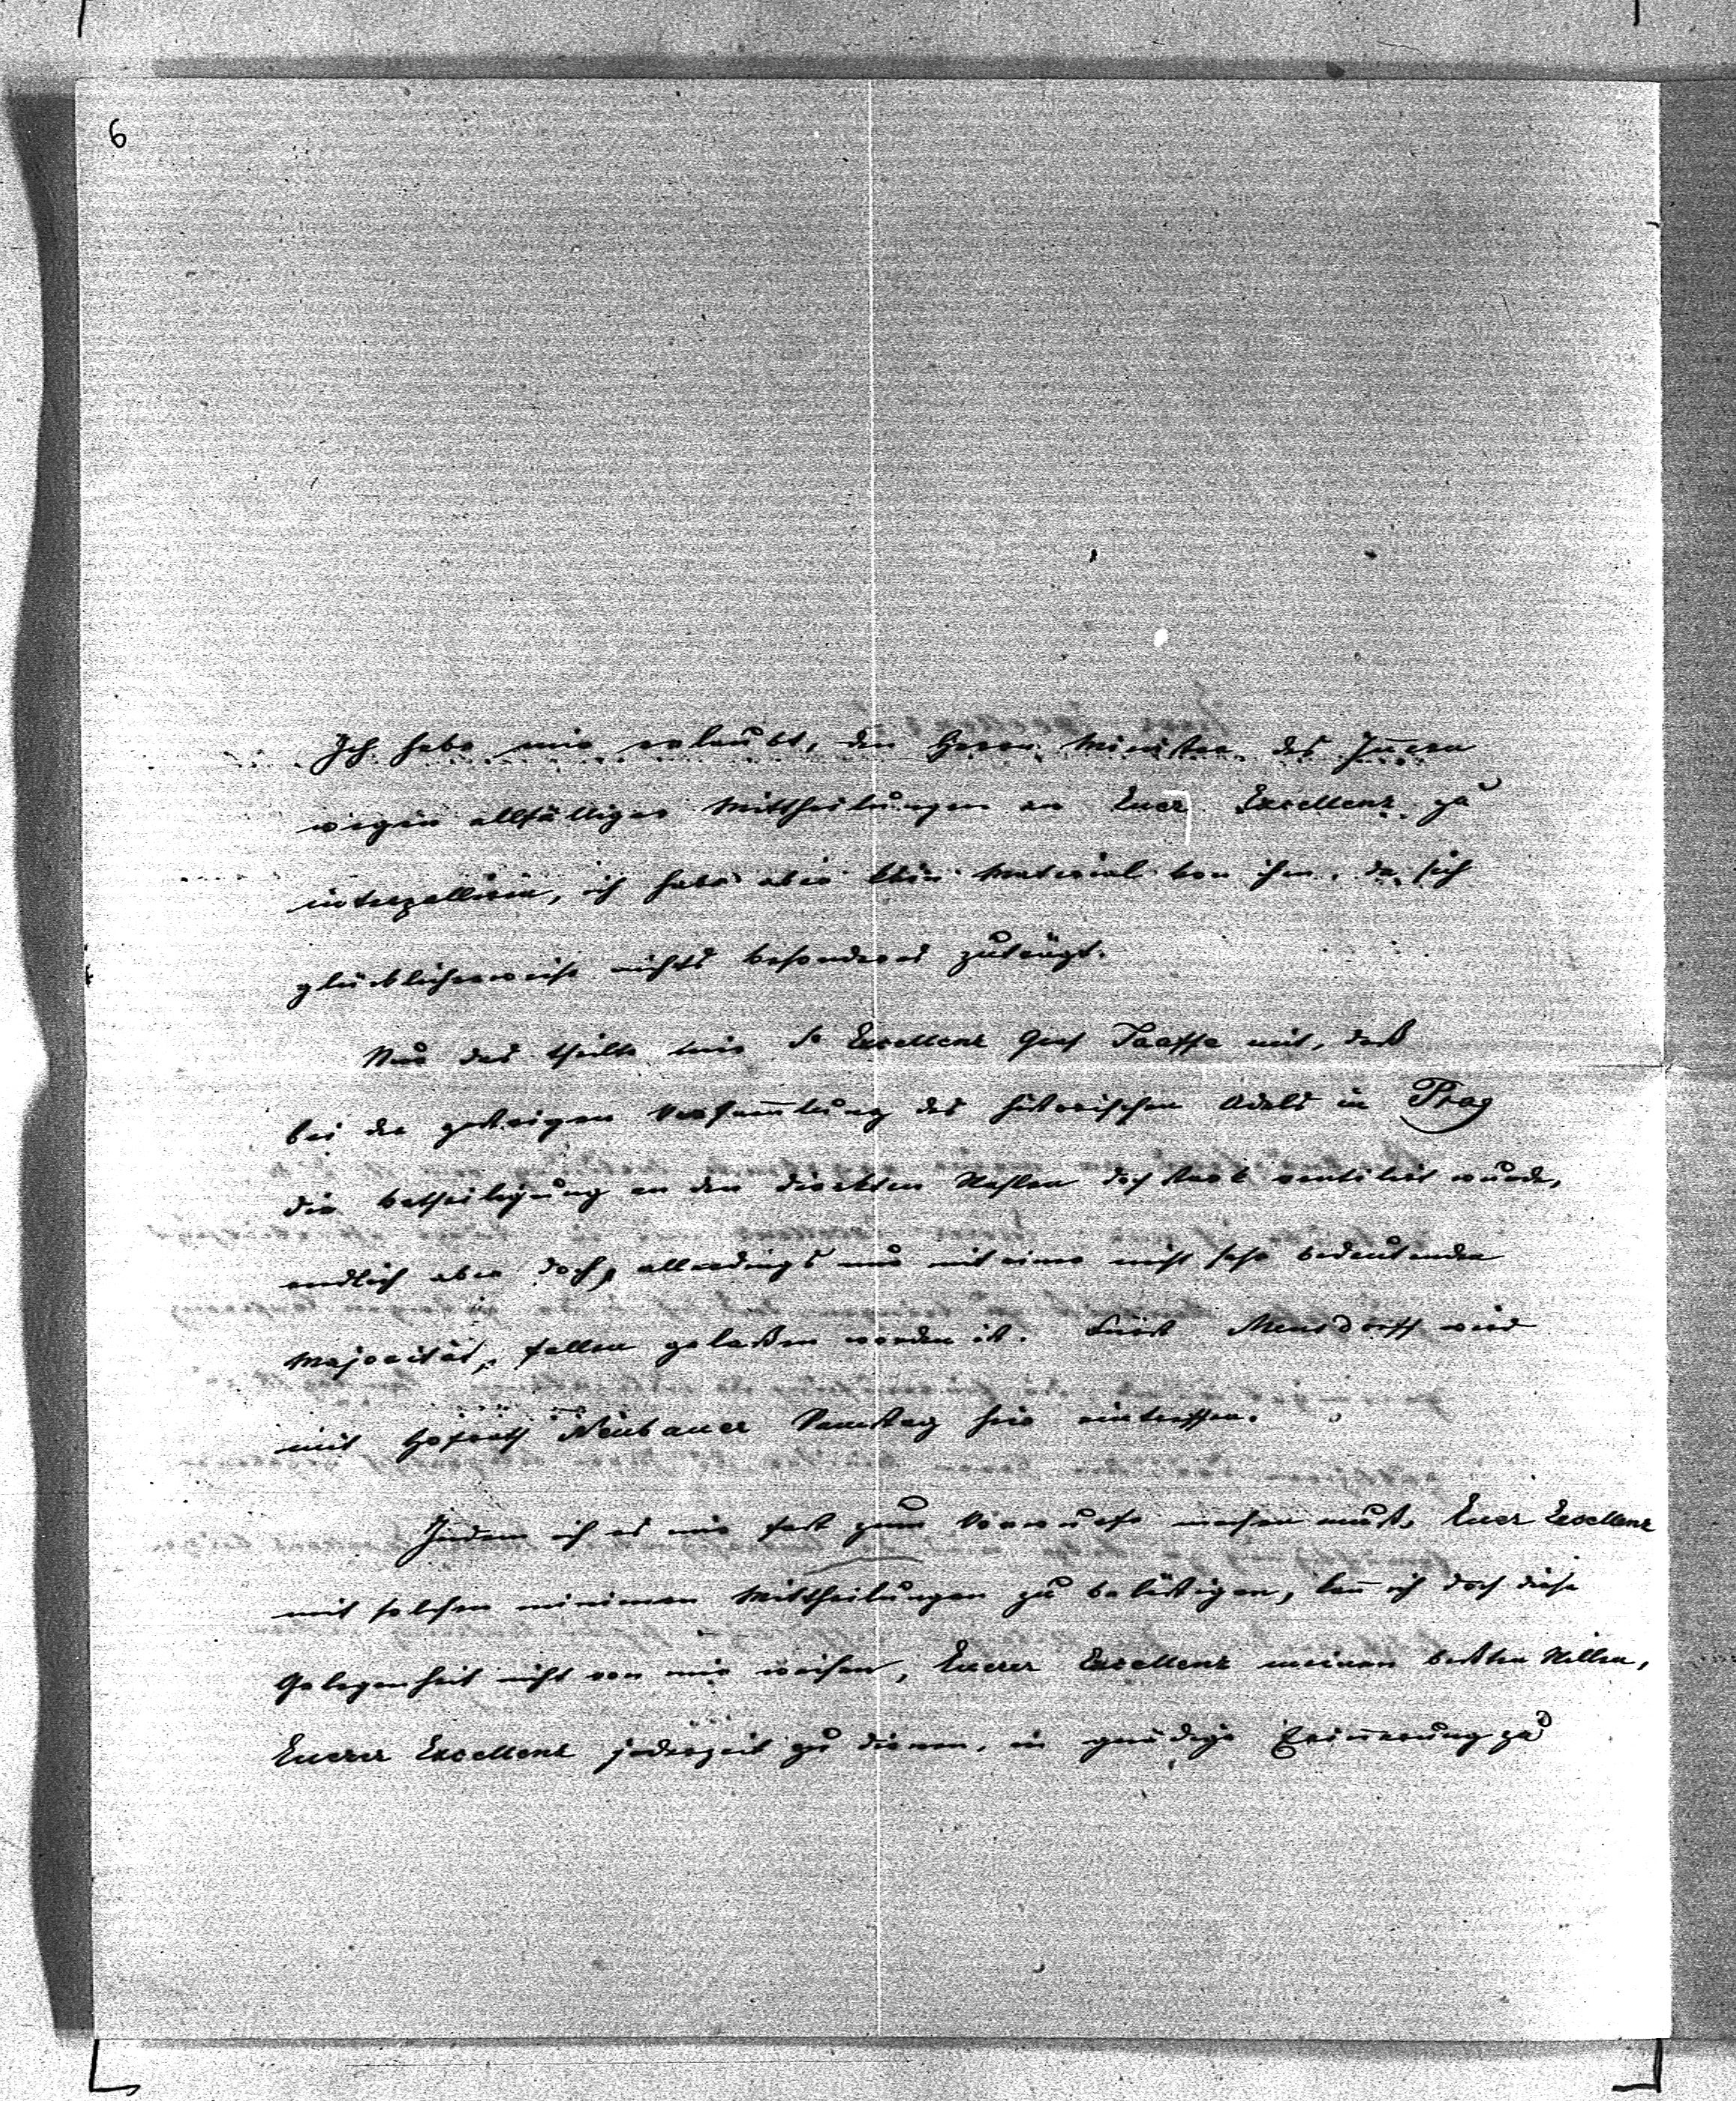 6
Ich habe mir erlaubt, den Herrn Minister des Iñern
wegen allfälliger Mittheilungen an Euer Excellenz zu
interpelliren, ich habe aber kein Material von ihm, da sich
glücklicherweise nichts besonderes zuträgt.
Nur das theilte mir Se Excellenz Graf Taaffe mit, daß
bei der gestrigen Versam̄lung des historischen Adels in Prag
die Betheiligung an den direkten Wahlen doch stark ventilirt wurde,
endlich aber doch, allerdings nur mit einer nicht sehr bedeutenden
Majorität, fallen gelaßen worden ist. Fürst Mensdorff wird
mit Hofrath Neubauer Samstag hier eintreffen.
Indem ich es mir fast zum Vorwurfe machen muß, Euer Excellenz
mit solchen minimen Mittheilungen zu belästigen, kañ ich doch diese
Gelegenheit nicht von mir weisen, Euerer Excellenz meinen besten Willen,
Euerer Excellenz jederzeit zu dienen, in gnädige Eriñerung zu